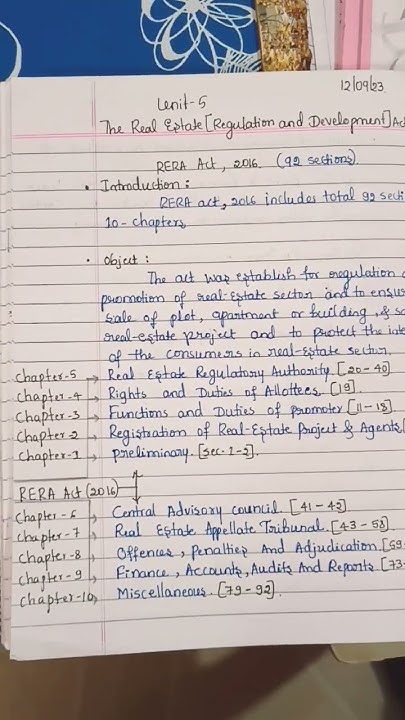 12/09/23
Unit-5
The Real Estate [Regulation and Development] Ac
RERA Act, 2016. (92 sections).
• Introduction :
RERA act, 2016 includes total 92 secti
10-chapters
• Object :
The act was establish for regulation
promotion of real-estate sector and to ensur
sale of plot, apartment or building, &
real-estate project and to protect the inte
of the consumers in real-estate sector.
Chapter-5 → Real Estate Regulatory Authority. [20-40]
Chapter-4 → Rights and Duties of Allottees. [19].
Chapter-3 → Functions and Duties of promoter [11-18]
Chapter-2 → Registration of Real-Estate Project & Agents.[
Chapter-1 → Preliminary. [Sec-1-2].
RERA Act (2016)
Chapter-6 → Central Advisory council. [41-42]
Chapter-7 → Real Estate Appellate Tribunal. [43-58].
Chapter-8 → Offences, Penalties And Adjudication. [59-
Chapter-9 → Finance, Accounts, Audits And Reports. [73-
Chapter-10 → Miscellaneous. [79-92].